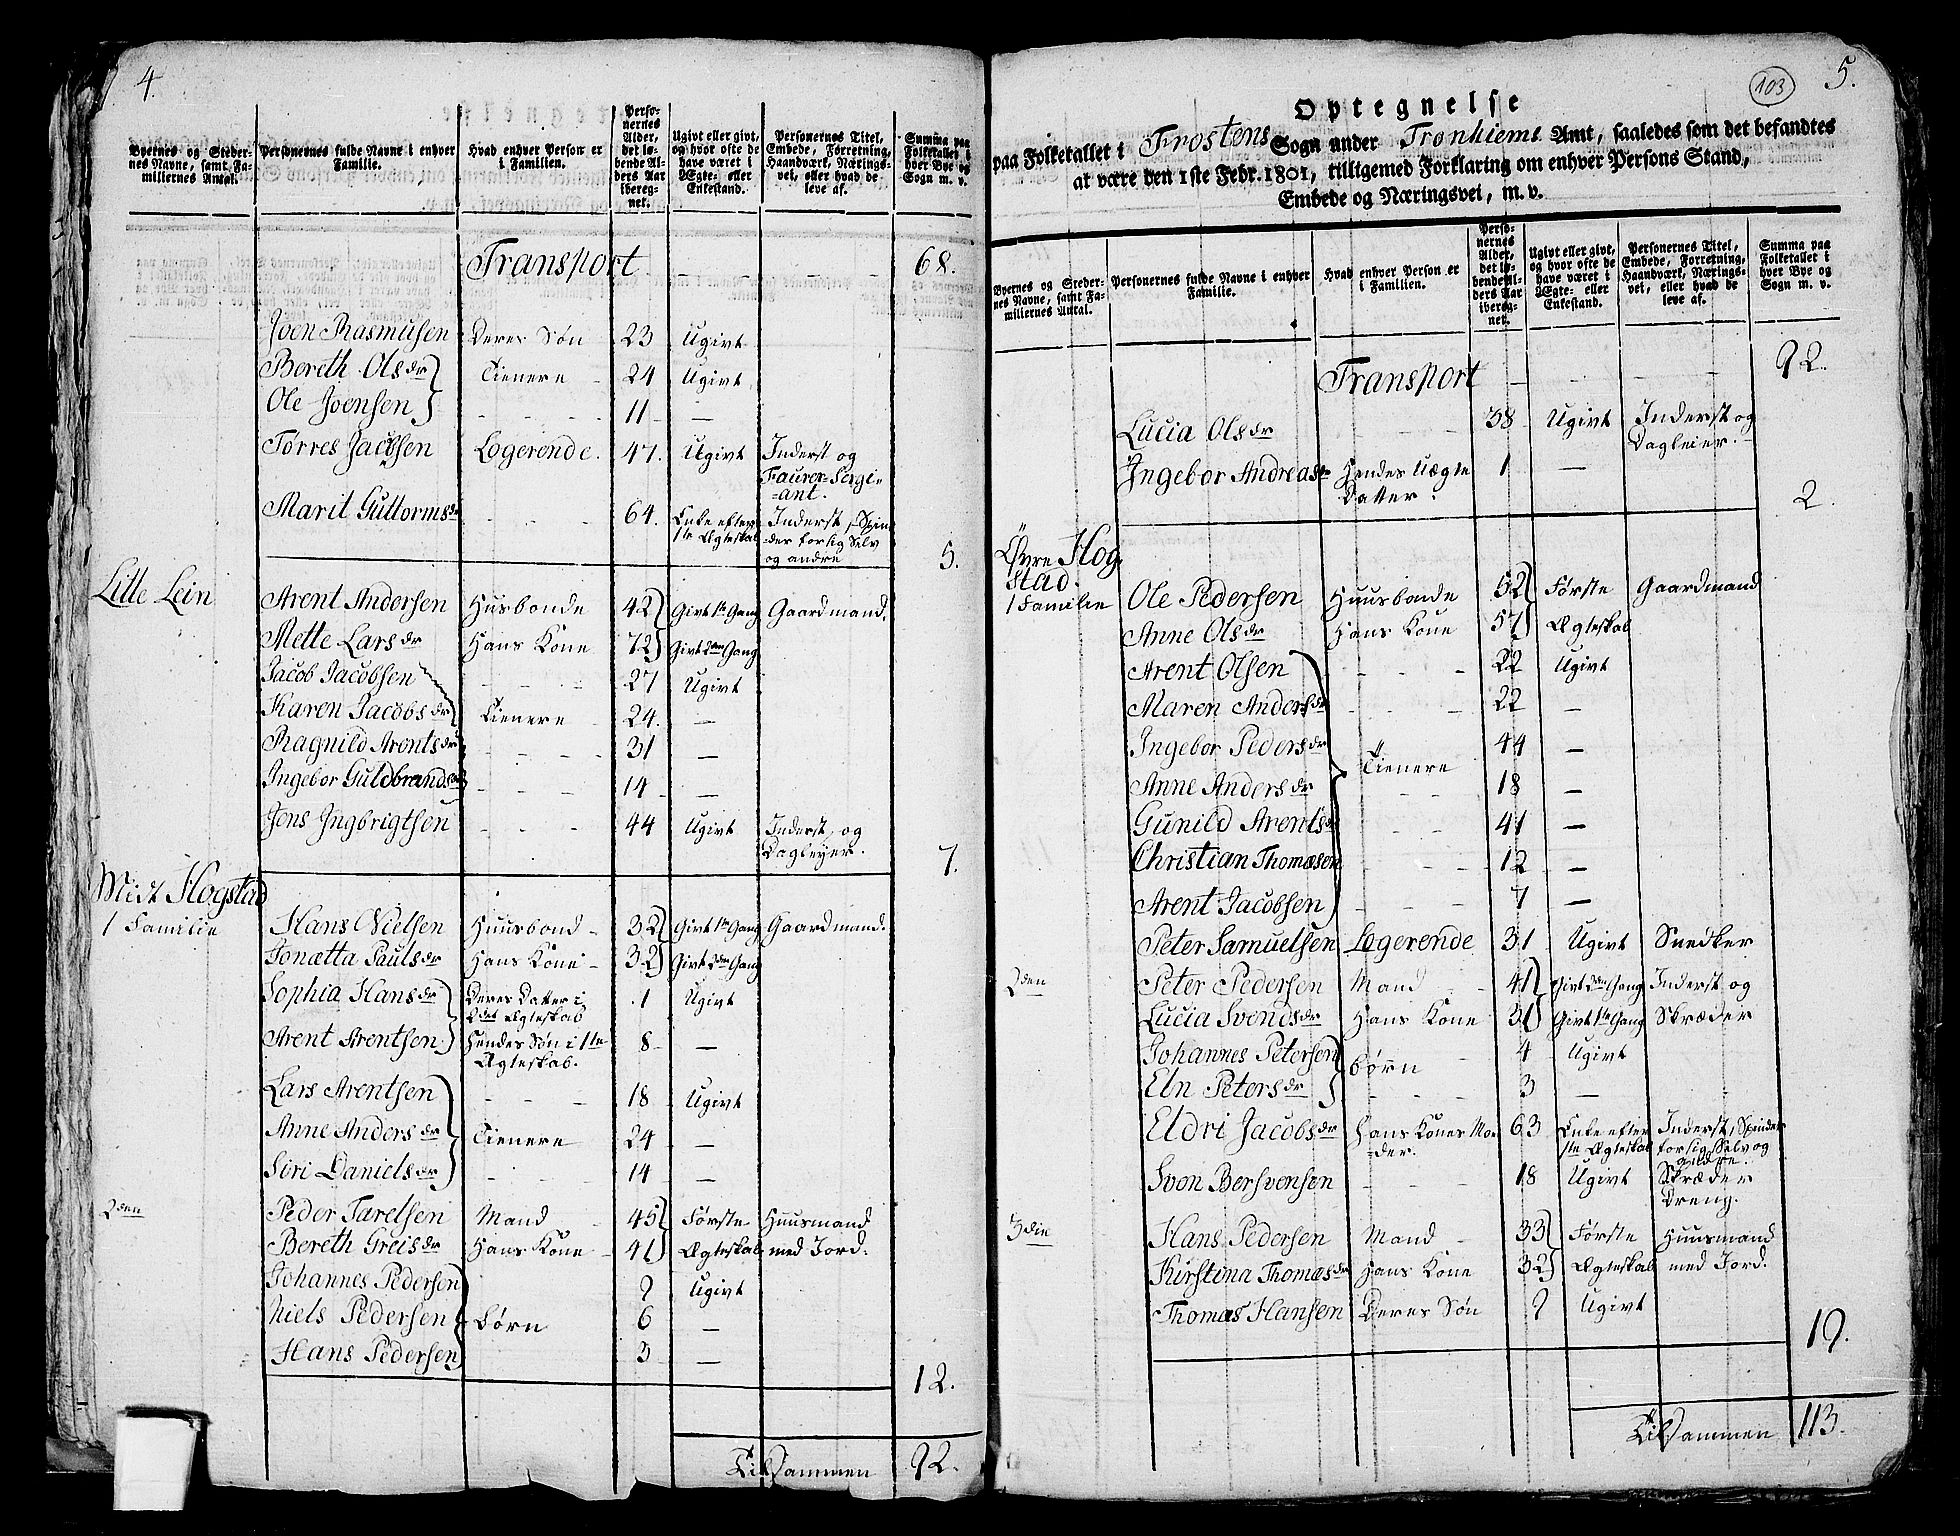 4.
Byernes og Steder-
nes Navne, samt Fa-
miliernes Antal.
Personernes fulde Navne i enhver
Familie.
Hvad enhver Person er
i Familien.
Perso-
nernes
Alder,
det lø-
bende Al-
ders Aar
iberegn-
net.
Ugivt eller givt,
og hvor ofte de
have været i
Ægte- eller
Enkestand.
Personernes Titel,
Embede, Forretning,
Haandværk, Nærings-
vei, eller hvad de
leve af.
Summa paa
Folketallet i
hver Bye og
Sogn m. v.
Transport 68.
Joen Rasmusen Deres Søn 23 Ugivt
Bereth Olsdr Tienere 24 Ugivt
Ole Joensen 11 —
Tørres Jacobsen Logerende. 47. Ugivt Inderst og
Faurer-Sergi-
-ant.
Marit Guttormsdr 64. Enke efter Inderst, Spin
1te Ægteskab -der for sig Selv
og andre
5.
Lille Lein
Arent Andersen Husbonde 42 Givt 1te Gang Gaardmand.
Mette Larsdr Hans Kone 72 Givt 2den Gang
Jacob Jacobsen 27 Ugivt
Karen Jacobsdr Tienere 24. —
Ragnild Arentsdr 31 —
Ingebor Guldbrandsdr 14 —
Jens Ingbrigtsen 44 Ugivt Inderst og
Dagleyer.
7.
Midt Hogstad
1 Familie Hans Nielsen Huusbond 32 Givt 1te Gang Gaardmand.
Jonætta Paulsdr Hans Kone 32 Givt 2den Gang
Sophia Hansdr Deres Datter i 1 Ugivt
2det Ægteskab
Arent Arentsen Hendes Søn i 1te 8 —
Ægteskab.
Lars Arentsen 18 Ugivt
Anne Andersdr Tienere 24 —
Siri Danielsdr 14 —
2den Peder Tarelsen Mand 45 Første Huusmand
Bereth Greisdr Hans Kone 41 Ægteskab med Jord.
Johannes Pedersen 9 Ugivt
Niels Pedersen Børn 6 —
Hans Pedersen 3 —
12.
Tilsammen 92.
103
5.
Optegnelse
paa Folketallet i Frostens Sogn under Tronhiems Amt, saaledes som det befandtes
at være den 1ste Febr. 1801, tilligemed Forklaring om enhver Persons Stand,
Embede og Næringsvei, m. v.
Byernes og Steder-
nes Navne, samt Fa-
miliernes Antal.
Personernes fulde Navne i enhver
Familie.
Hvad enhver Person er
i Familien.
Perso-
nernes
Alder,
det lø-
bende Al-
ders Aar
iberegn-
net.
Ugivt eller givt,
og hvor ofte de
have været i
Ægte- eller
Enkestand.
Personernes Titel,
Embede, Forretning,
Haandværk, Nærings-
vei, eller hvad de
leve af.
Summa paa
Folketallet i
hver Bye og
Sogn m. v.
Transport 92.
Lucia Olsdr 38 Ugivt Inderst og
Dagleier.
Ingebor Andreasdr Hendes Uægte 1 —
Datter.
2.
Øvre Hog
stad.
1 Familie Ole Pedersen Huusbonde 52 Første Gaardmand
Anne Olsdr Hans Kone 57 Ægteskab
Arent Olsen 22 Ugivt
Maren Andersdr 22 —
Ingebor Pedersdr 44 —
Tienere
Anne Andersdr 18 —
Gunild Arentsdr 41 —
Christian Thomæsen 12 —
Arent Jacobsen 7 —
Peter Samuelsen Logerende 31 Ugivt Snedker
2den Peter Pedersen Mand 41 Givt 2den Gang Inderst og
Lucia Svendsdr Hans Kone 31 Givt 1te Gang Skræder
Johannes Petersen Børn 4 Ugivt
Eln Petersdr 3 —
Eldri Jacobsdr Hans Kones Mo- 63 Enke efter Inderst, Spinder
-der. 1te Ægteskab for sig Selv og
andre.
Svon Bersvensen 18 Ugivt Skræder
Dreng.
3die Hans Pedersen Mand 33 Første Huusmand
Kirstina Thomæsdr Hans Kone 32 Ægteskab med Jord.
Thomæs Hansen Deres Søn 9 Ugivt
19.
Tilsammen 113.